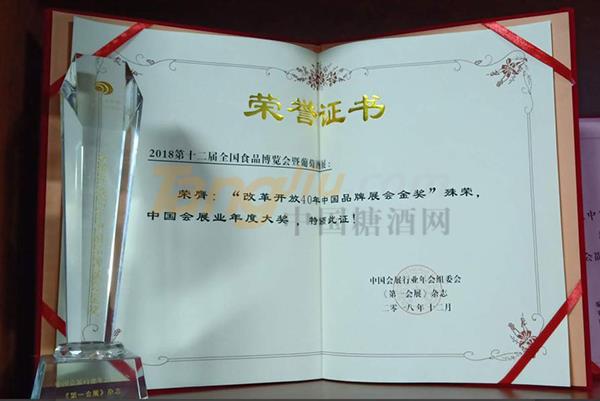 荣誉证书
2018第十二届全国食品博览会暨葡萄酒展：
荣膺：“改革开放40年中国品牌展会金奖”殊荣，
中国会展业年度大奖，特颁此证！
中国会展行业年会组委会
《第一会展》杂志
二〇一八年十二月
中国糖酒网
《第一会展》杂志